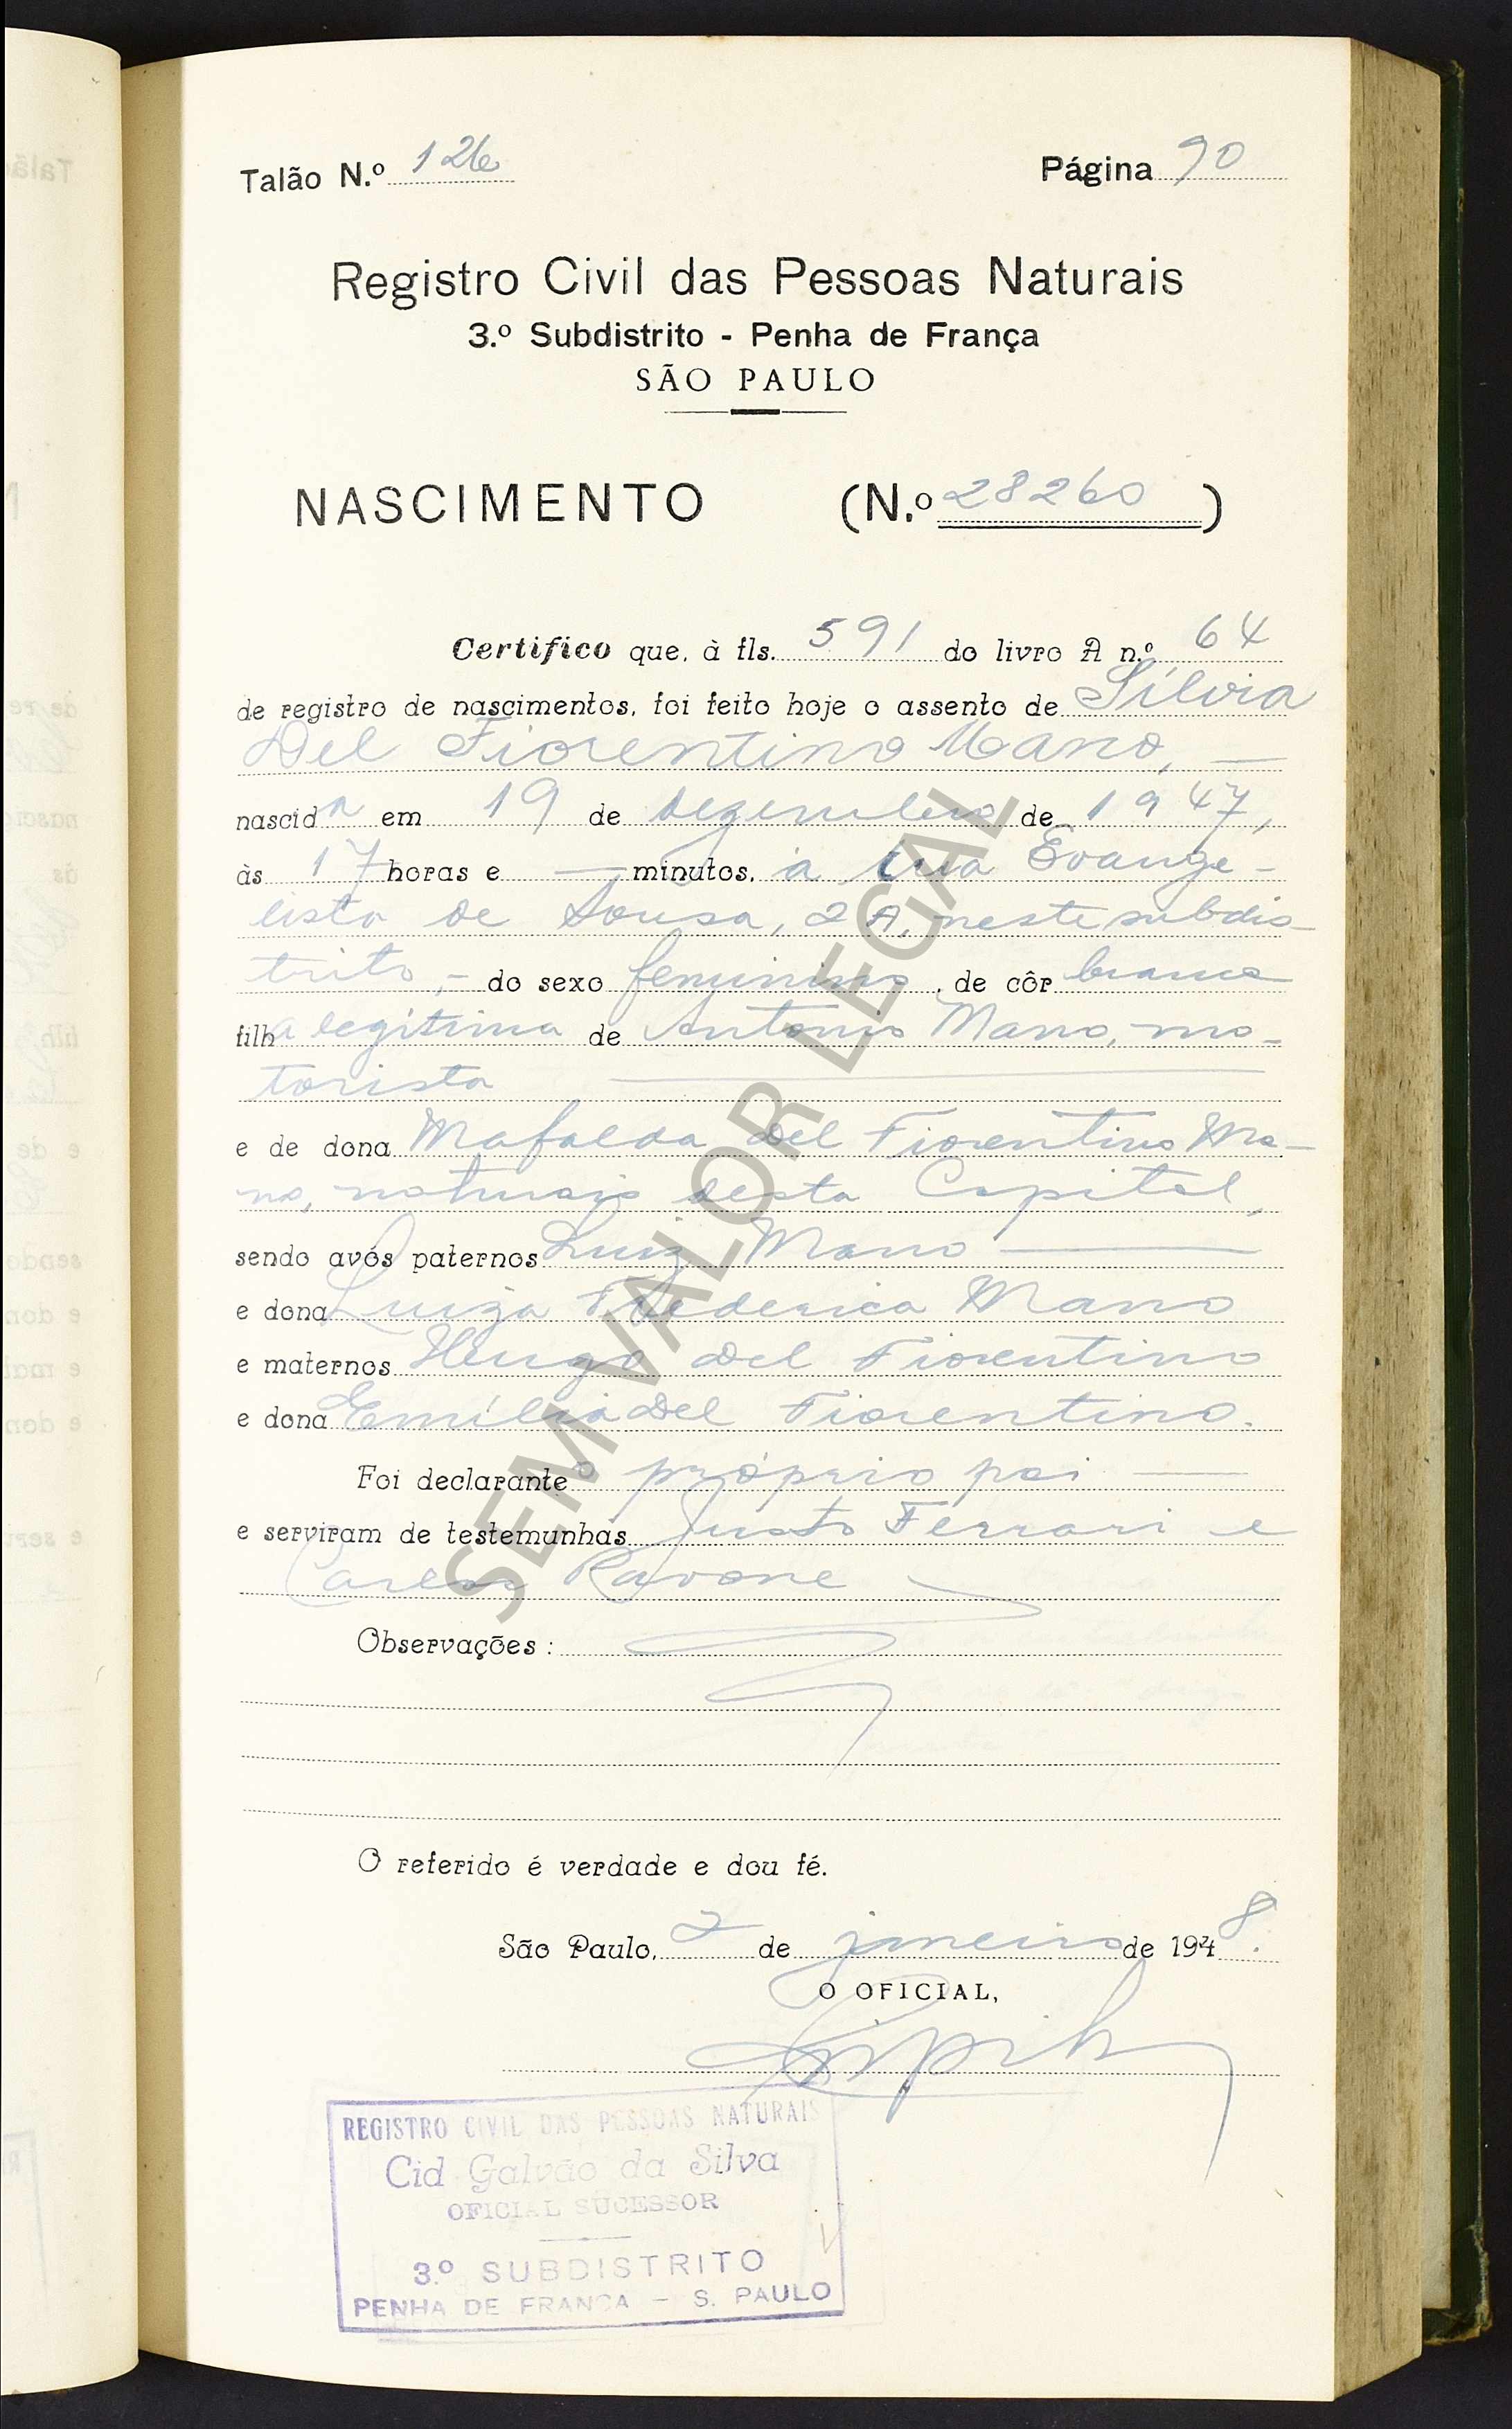 Talão N.º 126 Página 90
Registro Civil das Pessoas Naturais
3.º Subdistrito - Penha de França
SÃO PAULO
NASCIMENTO (N.º 28260)
Certifico que, à fls. 591 do livro A n.º 64
de registro de nascimentos, foi feito hoje o assento de Sílvia
Del Fiorentino Mano, —
nascida em 19 de dezembro de 1947,
às 17 horas e — minutos, à rua Evange-
lista de Sousa, 2A, neste subdis-
trito, - do sexo feminino, de côr branca
filha legítima de Antonio Mano, mo-
torista
e de dona Mafalda Del Fiorentino Ma-
no, naturais desta Capital,
sendo avós paternos Luiz Mano
e dona Luiza Frederica Mano
e maternos Hugo Del Fiorentino
e dona Emília Del Fiorentino.
Foi declarante o próprio pai
e serviram de testemunhas Justo Ferrari e
Carlos Ravone
Observações:
O referido é verdade e dou fé.
São Paulo, 2 de janeiro de 1948.
O OFICIAL,
REGISTRO CIVIL DAS PESSOAS NATURAIS
Cid Galvão da Silva
OFICIAL SUCESSOR
3.º SUBDISTRITO
PENHA DE FRANÇA - S. PAULO
SEM VALOR LEGAL